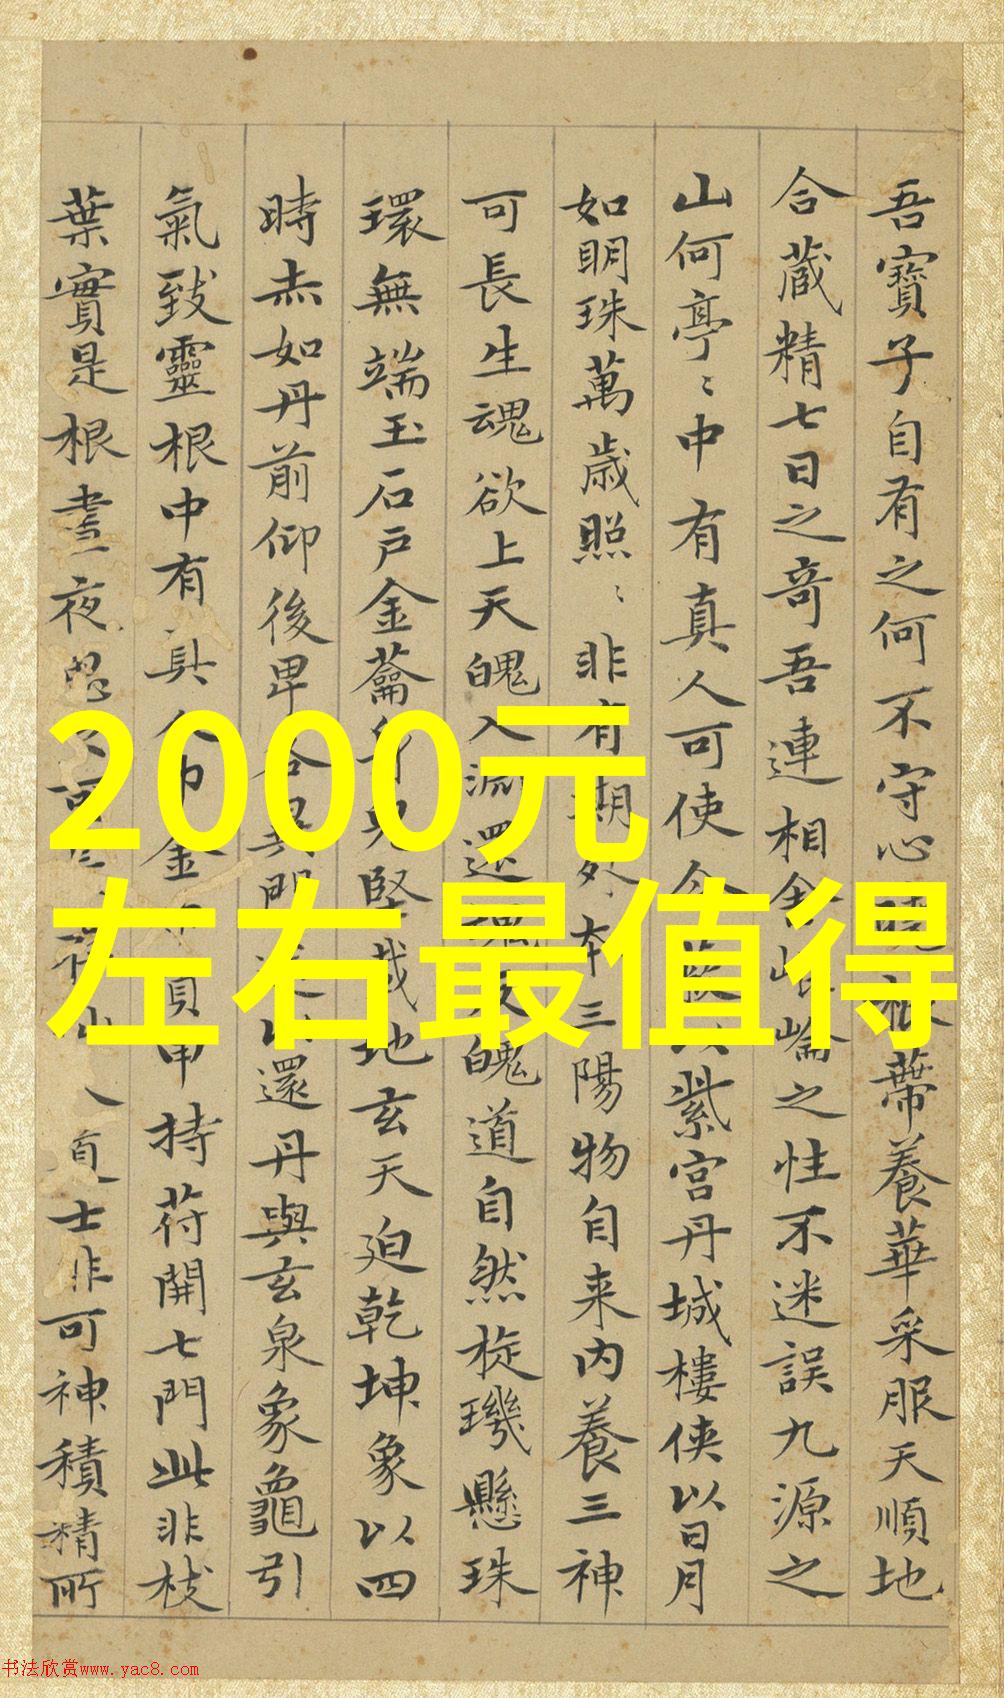 2000元
左右最值得
吾寶子自有之何不守心根蔕養華采服天順地
合蔵精七日之奇吾連相合崐崘之性不迷誤九源之
山何亭ミ中有真人可使令以紫宮丹城樓俠以日月
如明珠萬歳照ミ非有期外本三陽物自来内養三神
可長生魂欲上天魄入淵還魂反魄道自然旋璣懸珠
環無端玉石戶金蘥身完堅载地玄天迫乾坤象以四
時赤如丹前仰後卑各異門以還丹與玄泉象龜引
氣致靈根中有真人巾金負甲持苻開七門此非枝
葉實是根晝夜思可士非可神積精所
书法欣赏www.yac8.com